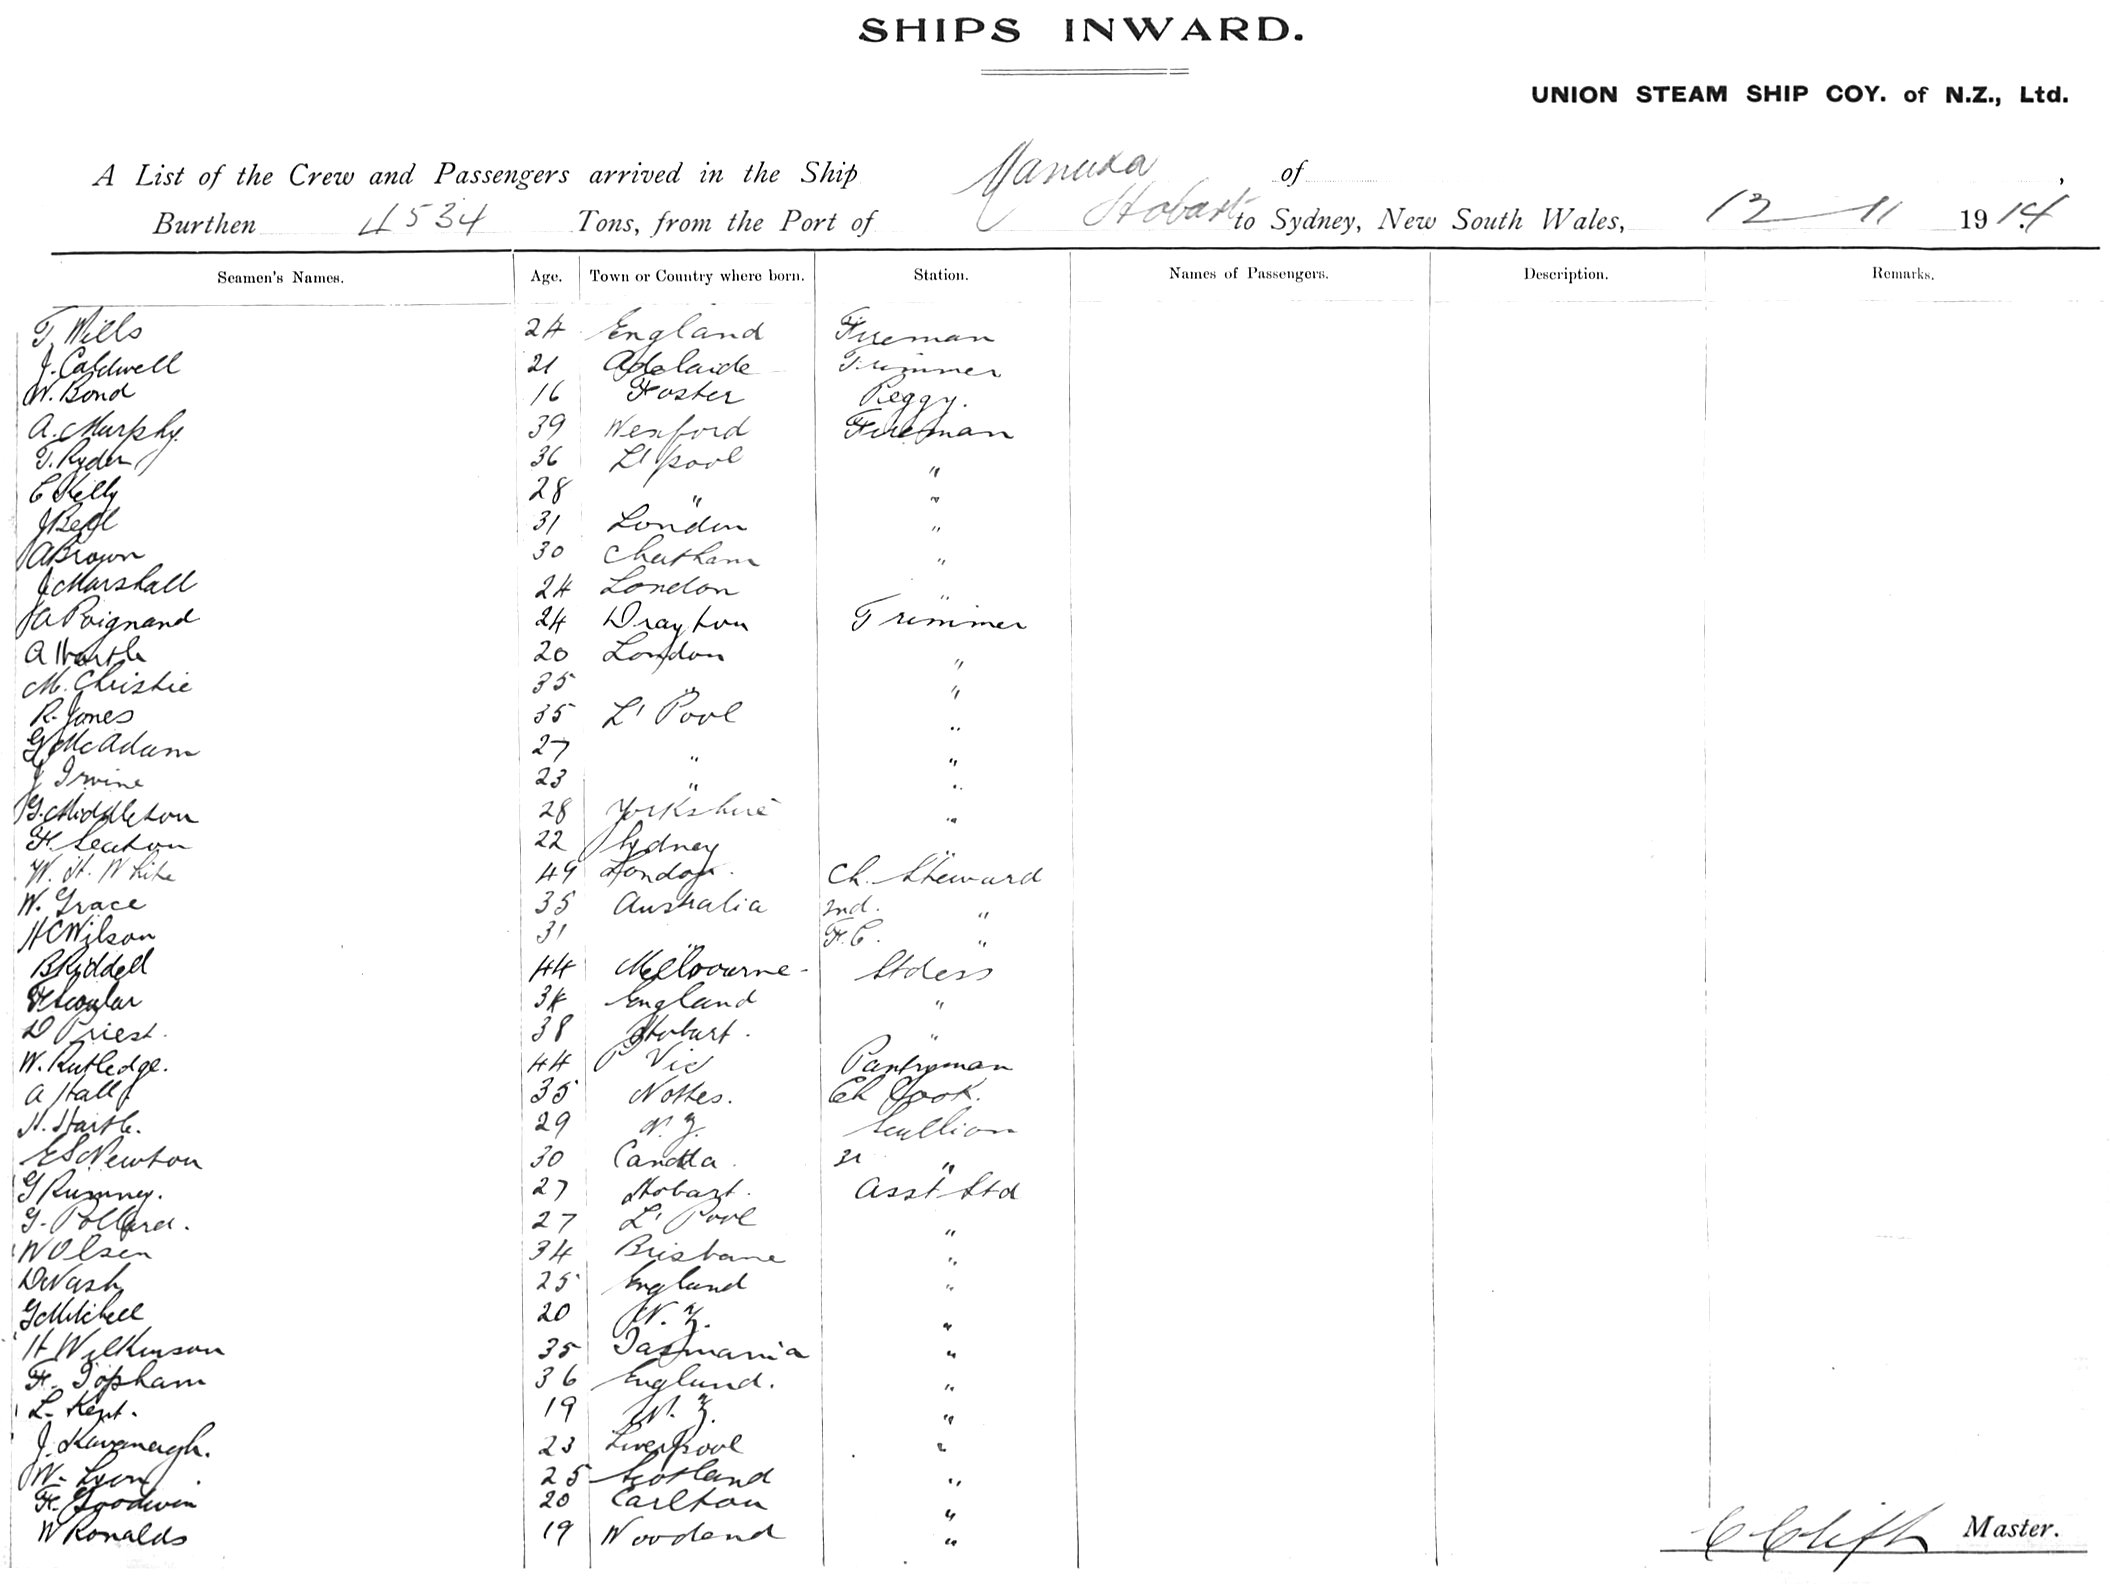 SHIPS INWARD.
UNION STEAM SHIP COY. of N.Z., Ltd.
A List of the Crew and Passengers arrived in the Ship Manuka of ,
Burthen 4534 Tons, from the Port of Hobart to Sydney, New South Wales, 12-11 1914
Seamen's Names. Age. Town or Country where born. Station. Names of Passengers. Description. Remarks.
T. Wills 24 England Fireman
J. Caldwell 21 Adelaide Trimmer
W. Bond 16 Foster Peggy.
A. Murphy. 39 Wexford Fireman
T. Ryder 36 L'pool "
C Kelly 28 " "
J 31 London "
A Brown 30 Chatham "
J Marshall 24 London "
A Poignand 24 Drayton Trimmer
A 20 London "
M. Christie 35 " "
R. Jones 35 L' Pool "
G McAdam 27 " "
J Irvine 23 " "
G. Middleton 28 Yorkshire "
F. Seaton 22 Sydney "
W. H. White 49 London. Ch. Steward
W. Grace 35 Australia 2nd. "
H C Wilson 31 " F. C. "
B Riddell 44 Melbourne - Stdess
F Scoular 34 England "
D Priest. 38 Hobart. "
W. Rutledge. 44 Vic Pantryman
A Hall 35 Nottes. Ch Cook.
H. Hartle. 29 N. Z. Scullion
E S Newton 30 Canada. "
G Rumney. 27 Hobart. Asst Std
G. Pollard. 27 L' Pool "
W Olsen 34 Brisbane "
D Nash 25 England "
G Mitchell 20 N. Z. "
H Wilkinson 35 Tasmania "
F. Topham 36 England. "
L. Kent. 19 N. Z. "
J. Kavanagh. 23 Liverpool "
W. Lyon 25 Scotland "
F. Goodwin 20 Carlton "
W Ronalds 19 Woodend "
Master.